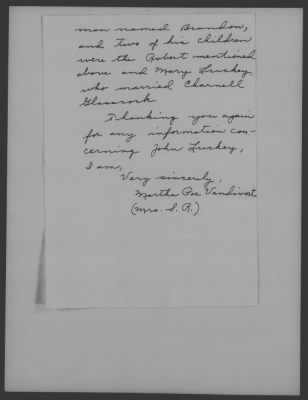 man named Brandon,
and two of his children
were the Robert mentioned
above and Mary Luskey,
who married Charnell
Glasscock.
Thanking you again
for any information con-
cerning John Luskey,
I am,
Very sincerely,
Martha Poe Vandivort
(Mrs. S. R.)